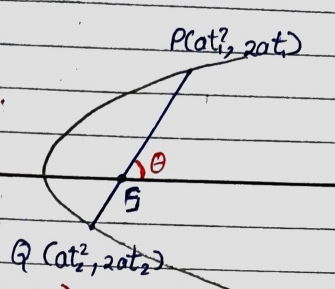 P(at₁², 2at₁)
θ
S
Q (at₂², 2at₂)